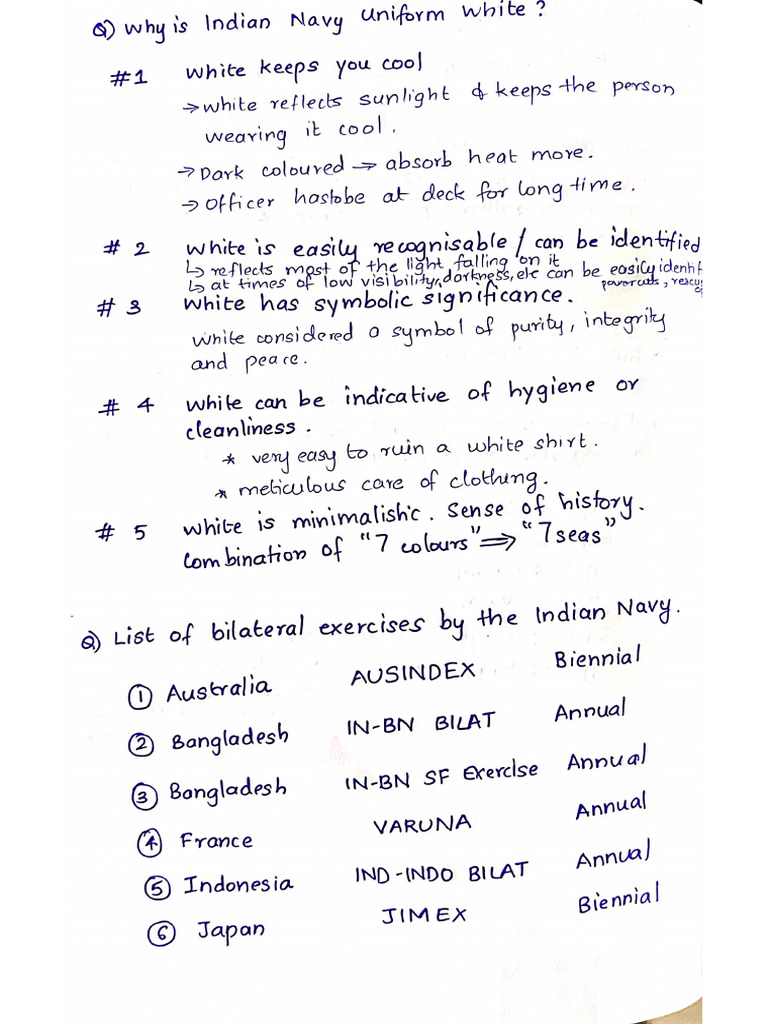 Q) Why is Indian Navy Uniform White ?
#1 White keeps you cool
→ white reflects sunlight & keeps the person
wearing it cool.
→ Dark coloured → absorb heat more.
→ Officer hastobe at deck for long time.
# 2 White is easily recognisable / can be identified
↳ reflects most of the light falling on it
↳ at times of low visibility, darkness, etc can be easily identif
# 3 White has symbolic significance.
white considered a symbol of purity, integrity
and peace.
# 4 White can be indicative of hygiene or
cleanliness.
* very easy to ruin a white shirt.
* meticulous care of clothing.
# 5 White is minimalistic. Sense of history.
Combination of "7 colours" ⇒ "7 seas"
Q) List of bilateral exercises by the Indian Navy.
① Australia AUSINDEX Biennial
② Bangladesh IN-BN BILAT Annual
③ Bangladesh IN-BN SF Exercise Annual
④ France VARUNA Annual
⑤ Indonesia IND-INDO BILAT Annual
⑥ Japan JIMEX Biennial